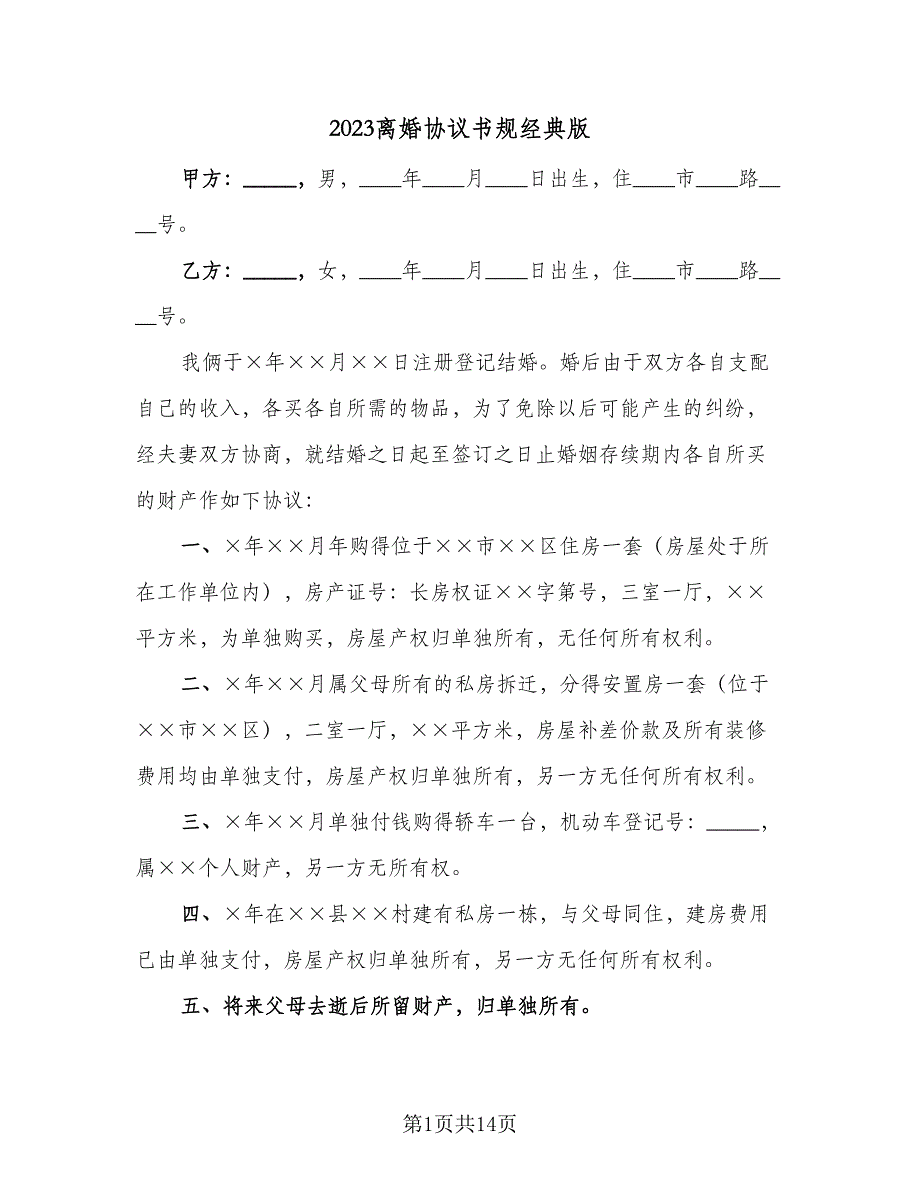 2023离婚协议书规经典版
甲方：_____，男，____年____月____日出生，住____市____路__
__号。
乙方：_____，女，____年____月____日出生，住____市____路__
__号。
我俩于×年××月××日注册登记结婚。婚后由于双方各自支配
自己的收入，各买各自所需的物品，为了免除以后可能产生的纠纷，
经夫妻双方协商，就结婚之日起至签订之日止婚姻存续期内各自所买
的财产作如下协议：
一、×年××月年购得位于××市××区住房一套（房屋处于所
在工作单位内），房产证号：长房权证××字第号，三室一厅，××
平方米，为单独购买，房屋产权归单独所有，无任何所有权利。
二、×年××月属父母所有的私房拆迁，分得安置房一套（位于
××市××区），二室一厅，××平方米，房屋补差价款及所有装修
费用均由单独支付，房屋产权归单独所有，另一方无任何所有权利。
三、×年××月单独付钱购得轿车一台，机动车登记号：_____，
属××个人财产，另一方无所有权。
四、×年在××县××村建有私房一栋，与父母同住，建房费用
已由单独支付，房屋产权归单独所有，另一方无任何所有权利。
五、将来父母去逝后所留财产，归单独所有。
第1页共14页